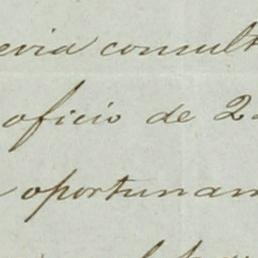 evia consult
oficio de 2
oportunam